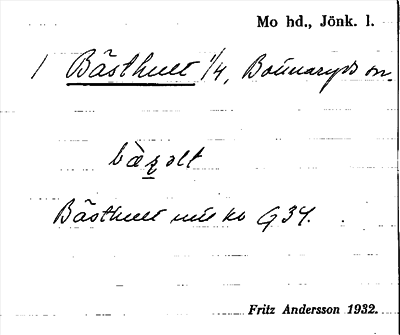 Mo hd., Jönk. l.
1 Bästhult 1/4, Bottnaryds sn.
bæ̀s̱əlt
Bästhult G 34.
Fritz Andersson 1932.